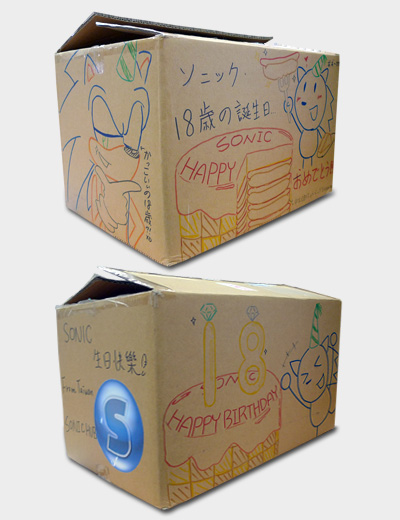 ソニック
18歳の誕生日
SONIC
HAPPY
おめでとう
かっこいいの18歳
SONIC
生日快樂!
From Taiwan
SONICHUB
S
18
SONIC
HAPPY BIRTHDAY